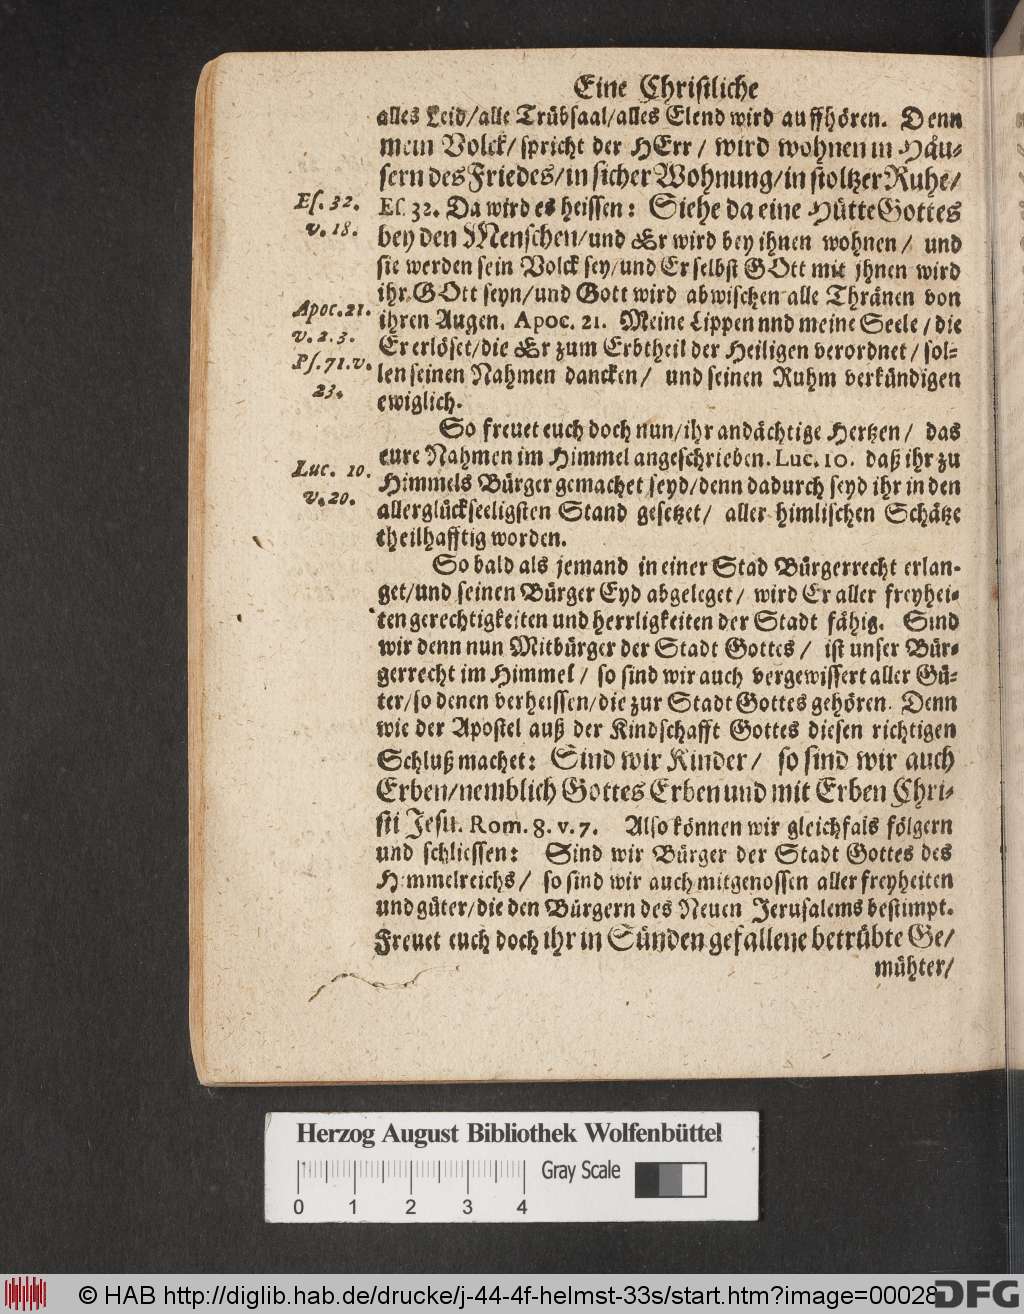 Eine Christliche
alles Leid/alle Trübsaal/alles Elend wird auffhören. Denn
mein Volck/ spricht der HErr/ wird wohnen in Häu-
sern des Friedes/in sicher Wohnung/in stoltzer Ruhe/
Es. 32.
v. 18.
Es. 32. Da wird es heissen: Siehe da eine Hütte Gottes
bey den Menschen/und Er wird bey ihnen wohnen/ und
sie werden sein Volck sey/und Er selbst GOtt mit jhnen wird
ihr GOtt seyn/und Gott wird abwischen alle Thränen von
Apoc. 21.
v. 2. 3.
ihren Augen. Apoc. 21. Meine Lippen nnd meine Seele/die
Er erlöset/die Er zum Erbtheil der Heiligen verordnet/ sol-
Ps. 71. v.
23.
len seinen Nahmen dancken/ und seinen Ruhm verkündigen
ewiglich.
So freuet euch doch nun/ihr andächtige Hertzen/ das
eure Nahmen im Himmel angeschrieben. Luc. 10. daß ihr zu
Luc. 10.
v. 20.
Himmels Bürger gemachet seyd/denn dadurch seyd ihr in den
allerglückseeligsten Stand gesetzet/ aller himlischen Schätze
theilhafftig worden.
So bald als jemand in einer Stad Bürgerrecht erlan-
get/und seinen Bürger Eyd abgeleget/ wird Er aller freyhei-
ten gerechtigkeiten und herrligkeiten der Stadt fähig. Sind
wir denn nun Mitbürger der Stadt Gottes/ ist unser Bür-
gerrecht im Himmel/ so sind wir auch vergewissert aller Gü-
ter/so denen verheissen/die zur Stadt Gottes gehören. Denn
wie der Apostel auß der Kindschafft Gottes diesen richtigen
Schluß machet: Sind wir Kinder/ so sind wir auch
Erben/nemblich Gottes Erben und mit Erben Chri-
sti Jesu. Rom. 8. v. 7. Also können wir gleichfals fölgern
und schliessen: Sind wir Bürger der Stadt Gottes des
Himmelreichs/ so sind wir auch mitgenossen aller freyheiten
und güter/die den Bürgern des Neuen Jerusalems bestimpt.
Freuet euch doch ihr in Sünden gefallene betrübte Ge/
mühter/
Herzog August Bibliothek Wolfenbüttel
Gray Scale
0 1 2 3 4
© HAB http://diglib.hab.de/drucke/j-44-4f-helmst-33s/start.htm?image=00028
DFG